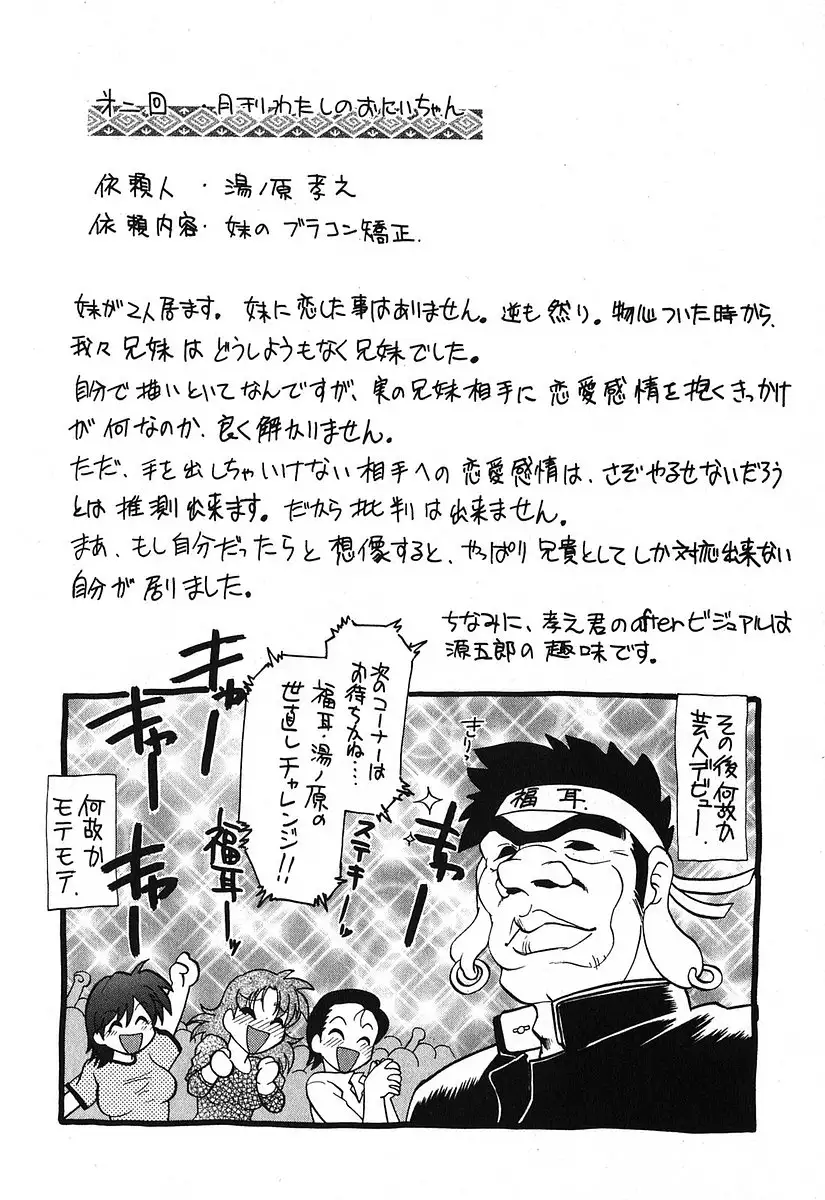 第二回・月刊わたしのおにいちゃん
依頼人・湯ノ原孝之
依頼内容・妹のブラコン矯正.
妹が2人居ます。妹に恋した事はありません。逆も然り。物心ついた時から、
我々兄妹はどうしようもなく兄妹でした。
自分で描いといてなんですが、実の兄妹相手に恋愛感情を抱くきっかけ
が何なのか、良く解かりません。
ただ、手を出しちゃいけない相手への恋愛感情は、さぞやるせないだろう
とは推測出来ます。だから批判は出来ません。
まあ、もし自分だったらと想像すると、やっぱり兄貴としてしか対応出来ない
自分が居りました。
ちなみに、孝之君のafterビジュアルは
源五郎の趣味です。
その後何故か
芸人デビュー.
きりっ
福耳.
次のコーナーは
お待ちかね…
福耳・湯ノ原の
世直しチャレンジ!!
キャー
キャー
キャー
キャー
ステキー
福耳ー
何故か
モテモテ.